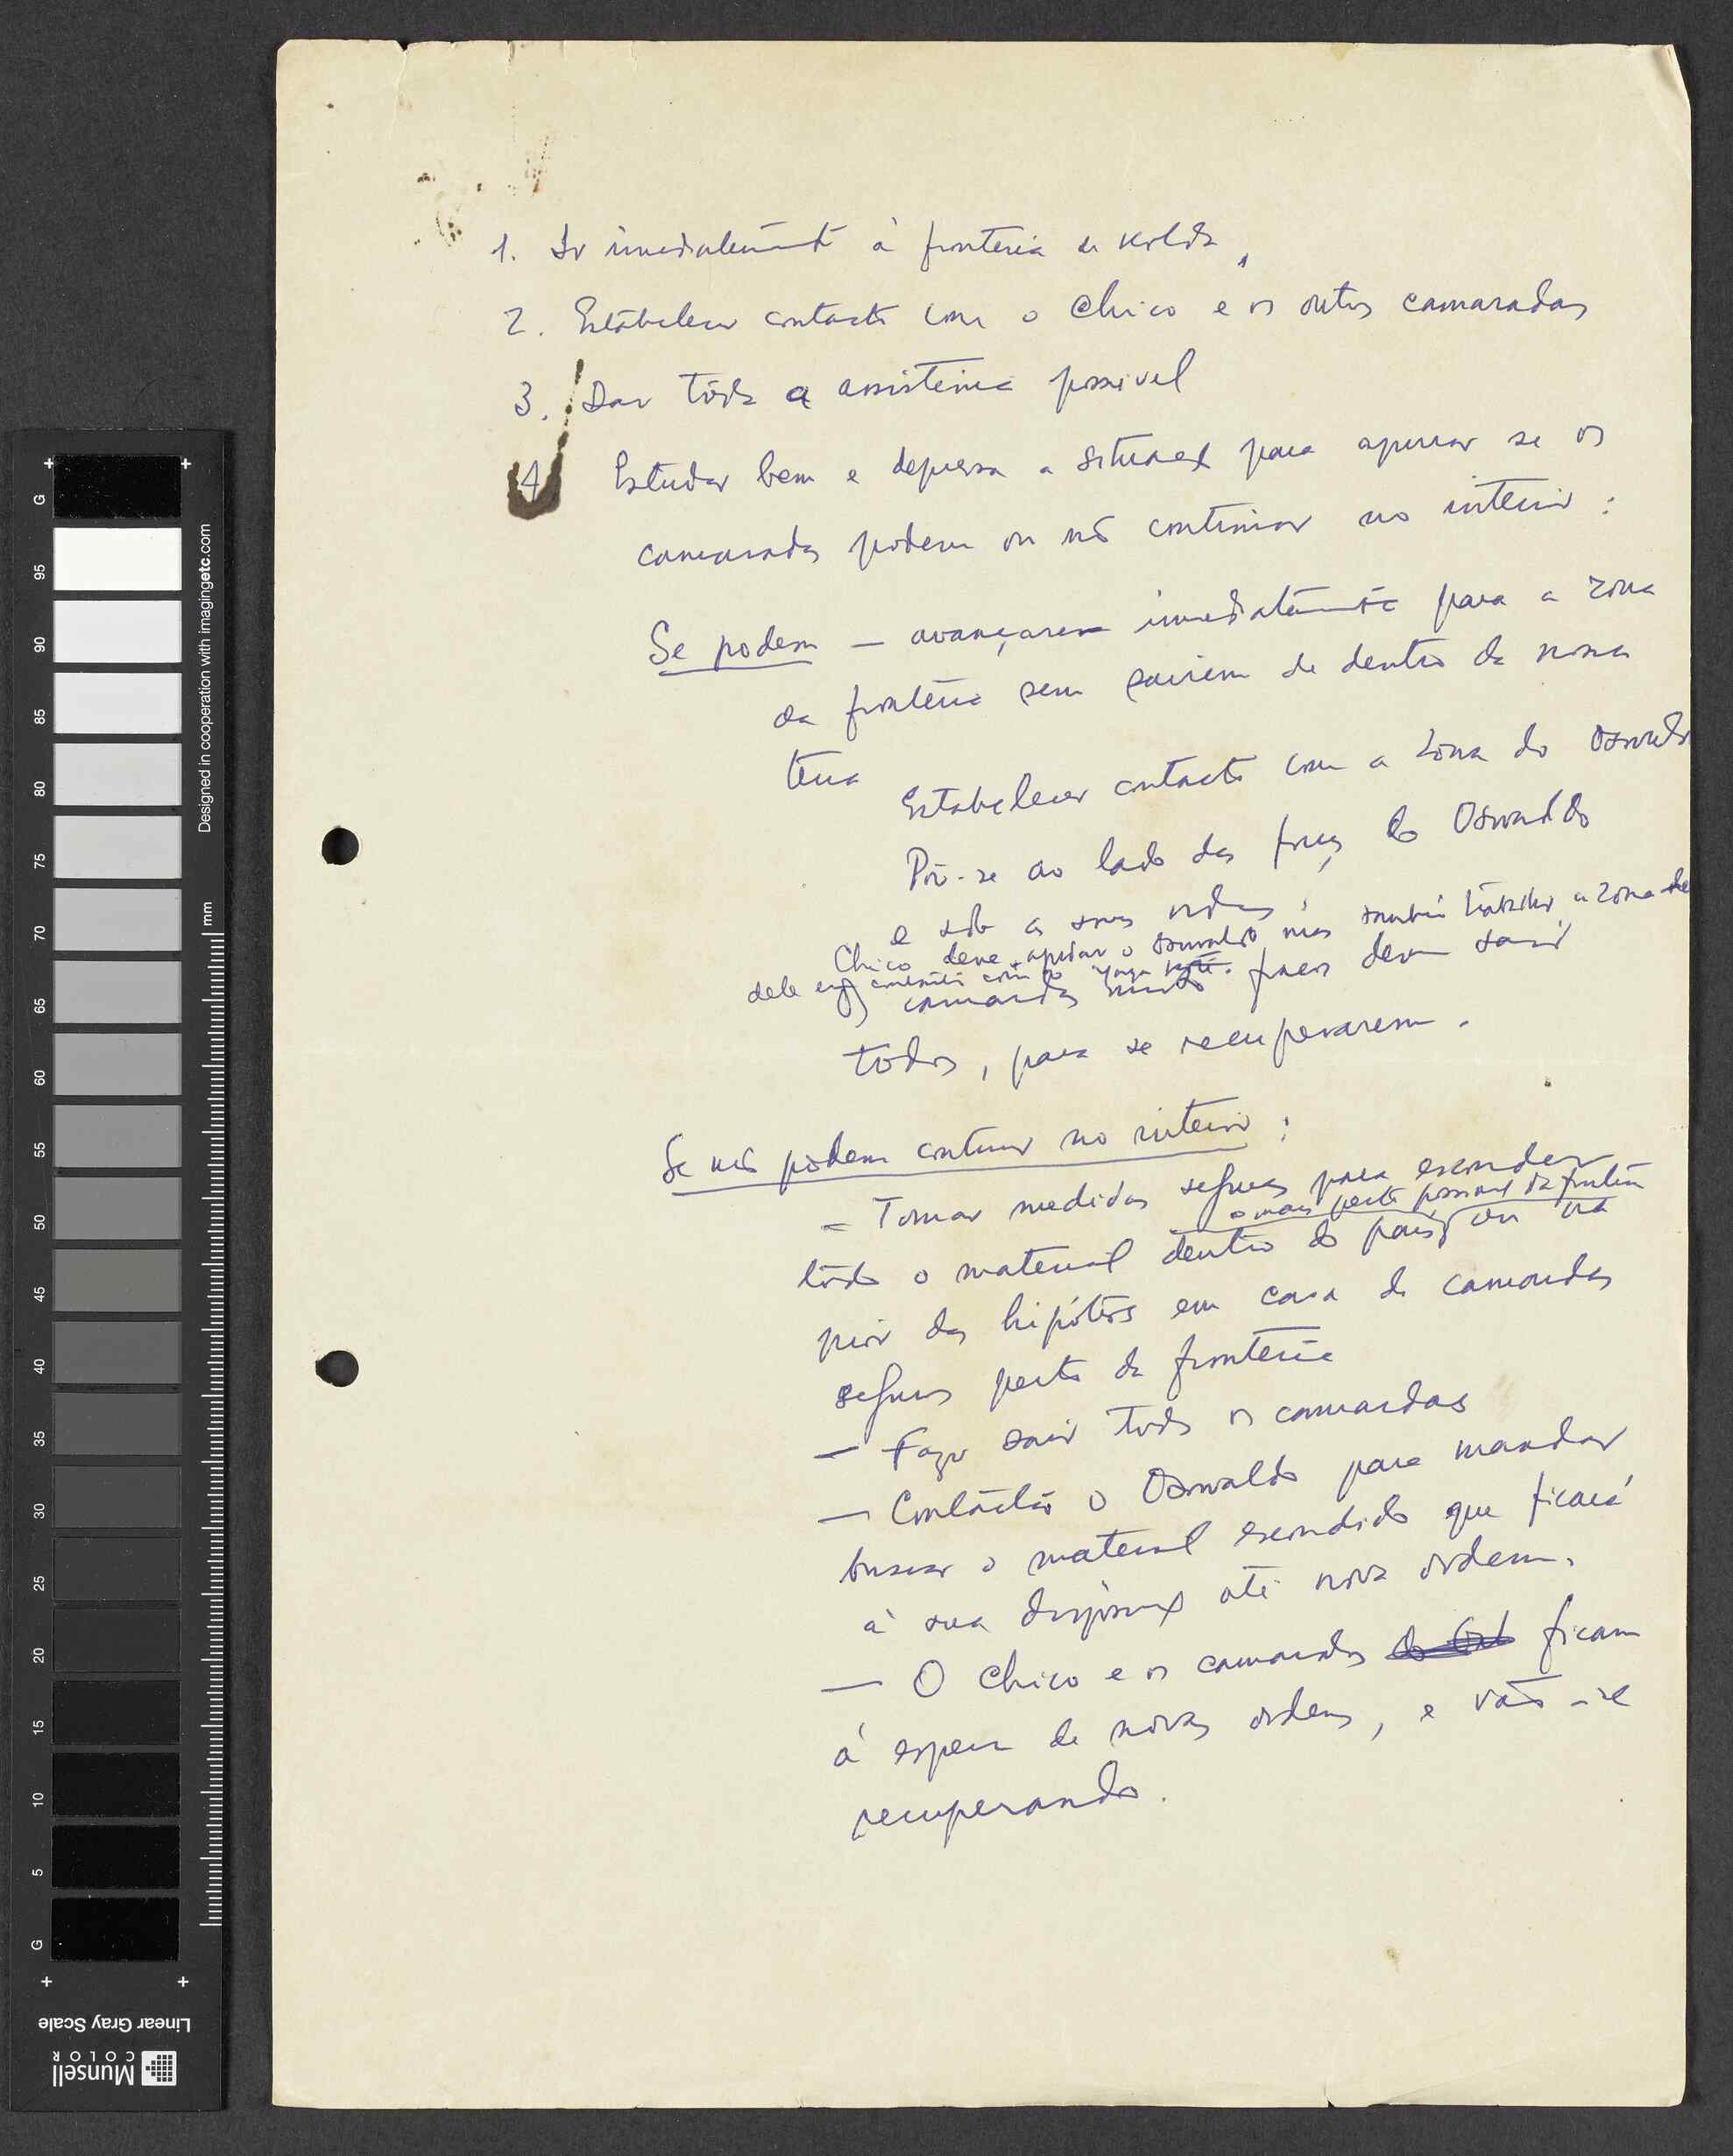 1. Ir imediatamente à fronteira de Kolda,
2. Estabelecer contacto com o Chico e os outros camaradas
3. Dar toda a assistencia possivel
4 Estudar bem e depressa a situação para apurar se os
camaradas podem ou não continuar no interior :
Se podem — avançarem imediatamente para a zona
da fronteira sem sairem de dentro da nossa
terra
Estabelecer contacto com a zona do Osvaldo
Pôr-se ao lado das forças do Osvaldo
e sob as suas ordens.
Chico deve apoiar o Osvaldo mas também trabalhar a zona
dele em
camaradas muito fracos devem sair
todos, para se recuperarem.
Se não podem continuar no interior :
– Tomar medidas seguras para esconder
o mais perto possivel da fronteira
todo o material dentro do país, ou na
pior das hipóteses em casa de camaradas
seguros perto da fronteira
— Fazer sair todos os camaradas
— Contactar o Osvaldo para mandar
buscar o material escondido que ficará
à sua disposição até nova ordem.
— O Chico e os camaradas ficam
á espera de novas ordens, e vão-se
recuperando.
G
95
90
85
80
75
70
65
60
55
50
45
40
35
30
25
20
15
10
5
G
mm
Designed in cooperation with imagingetc.com
Linear Gray Scale
Munsell
COLOR